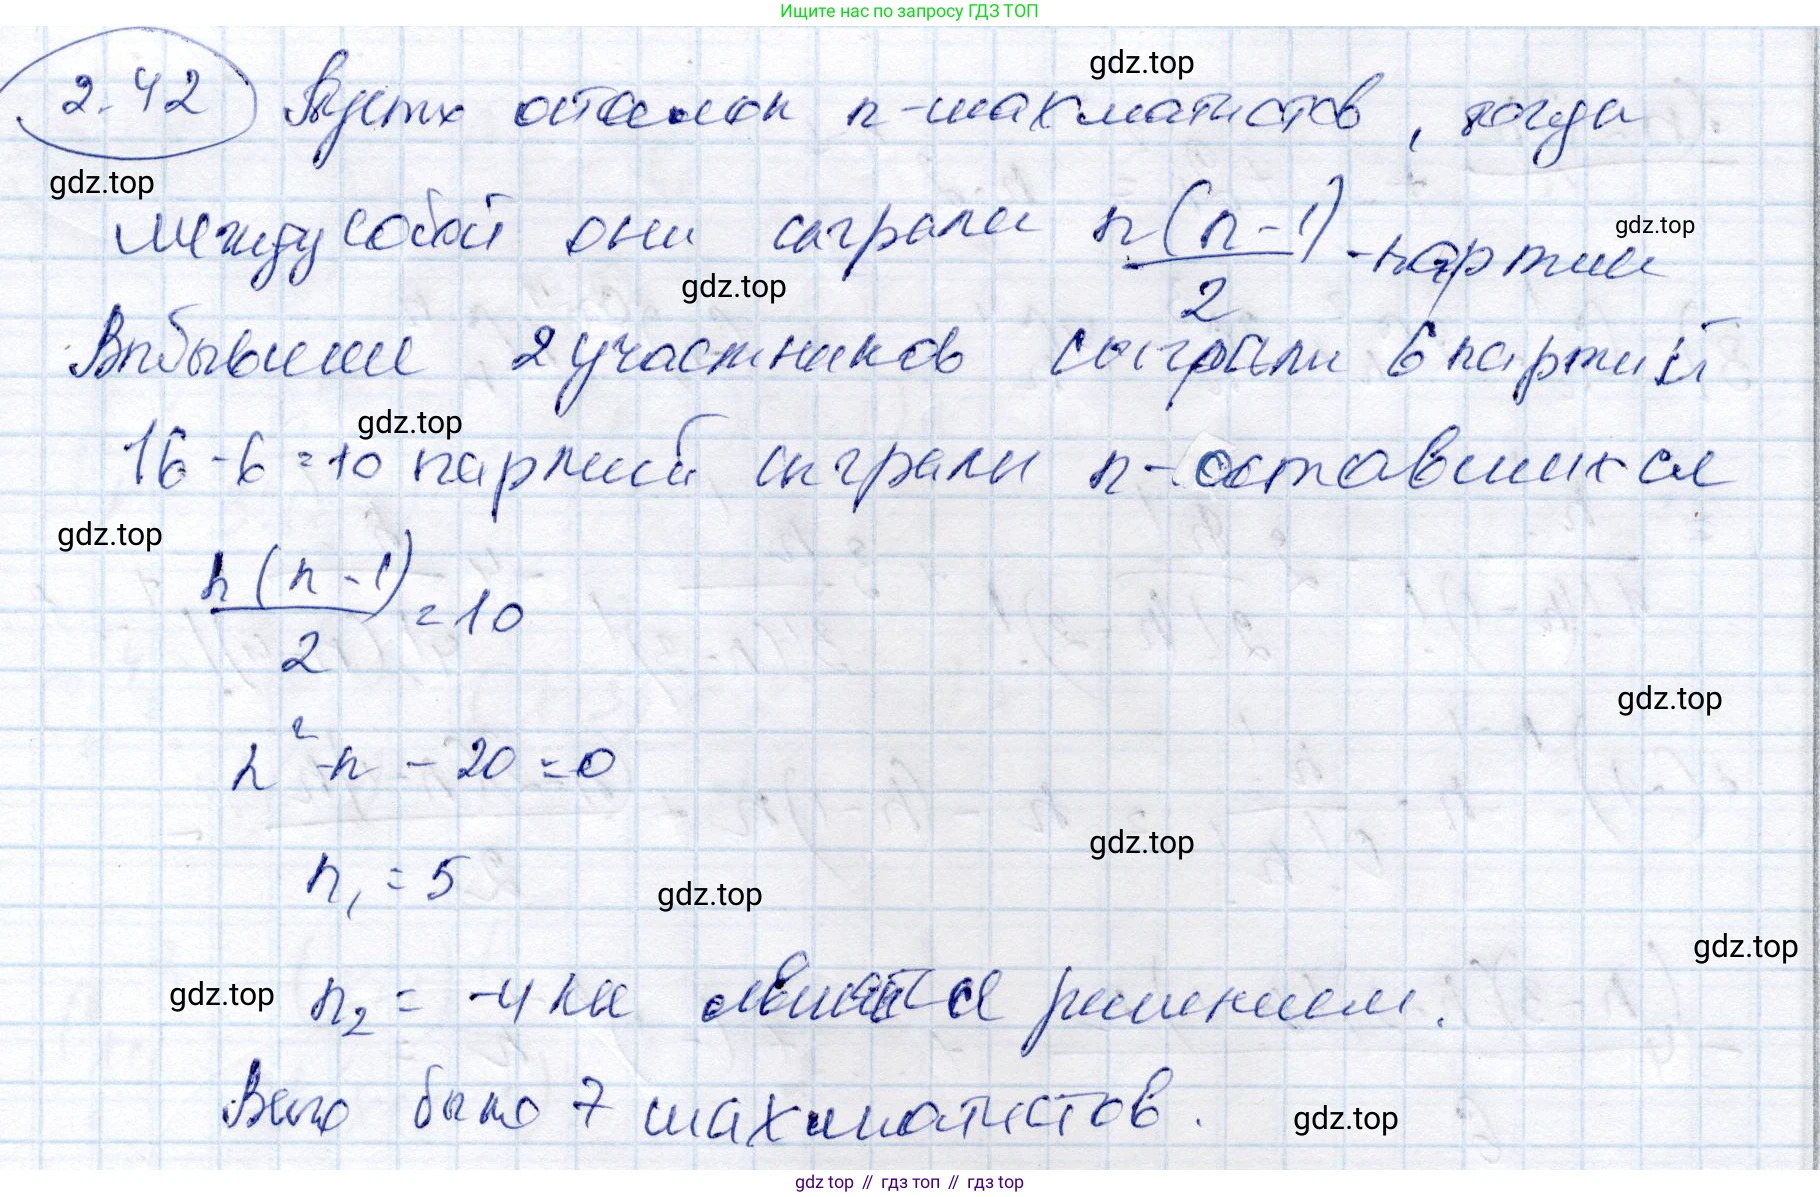 Ищите нас по запросу ГДЗ ТОП
2.42 Пусть осталось n-шахматистов, тогда
gdz.top
gdz.top
между собой они сыграли n(n-1)/2 - партии
gdz.top
gdz.top
Выбывшие 2 участников сыграли 6 партий
gdz.top
16-6=10 партий сыграли n-оставшихся
gdz.top
n(n-1)/2 = 10
gdz.top
n²-n-20=0
gdz.top
n₁=5
gdz.top
gdz.top
n₂=-4 не является решением.
gdz.top
Всего было 7 шахматистов.
gdz.top
gdz top // гдз топ // гдз top